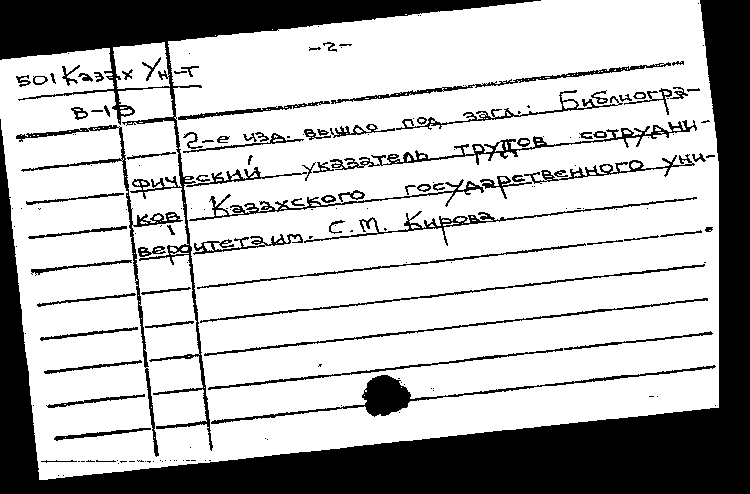 -2-
501 Казах Ун-т
В-19
2-е изд. вышло под загл.: Библиогра-
фический указатель трудов сотрудни-
ков Казахского государственного уни-
верситета им. С.М. Кирова.